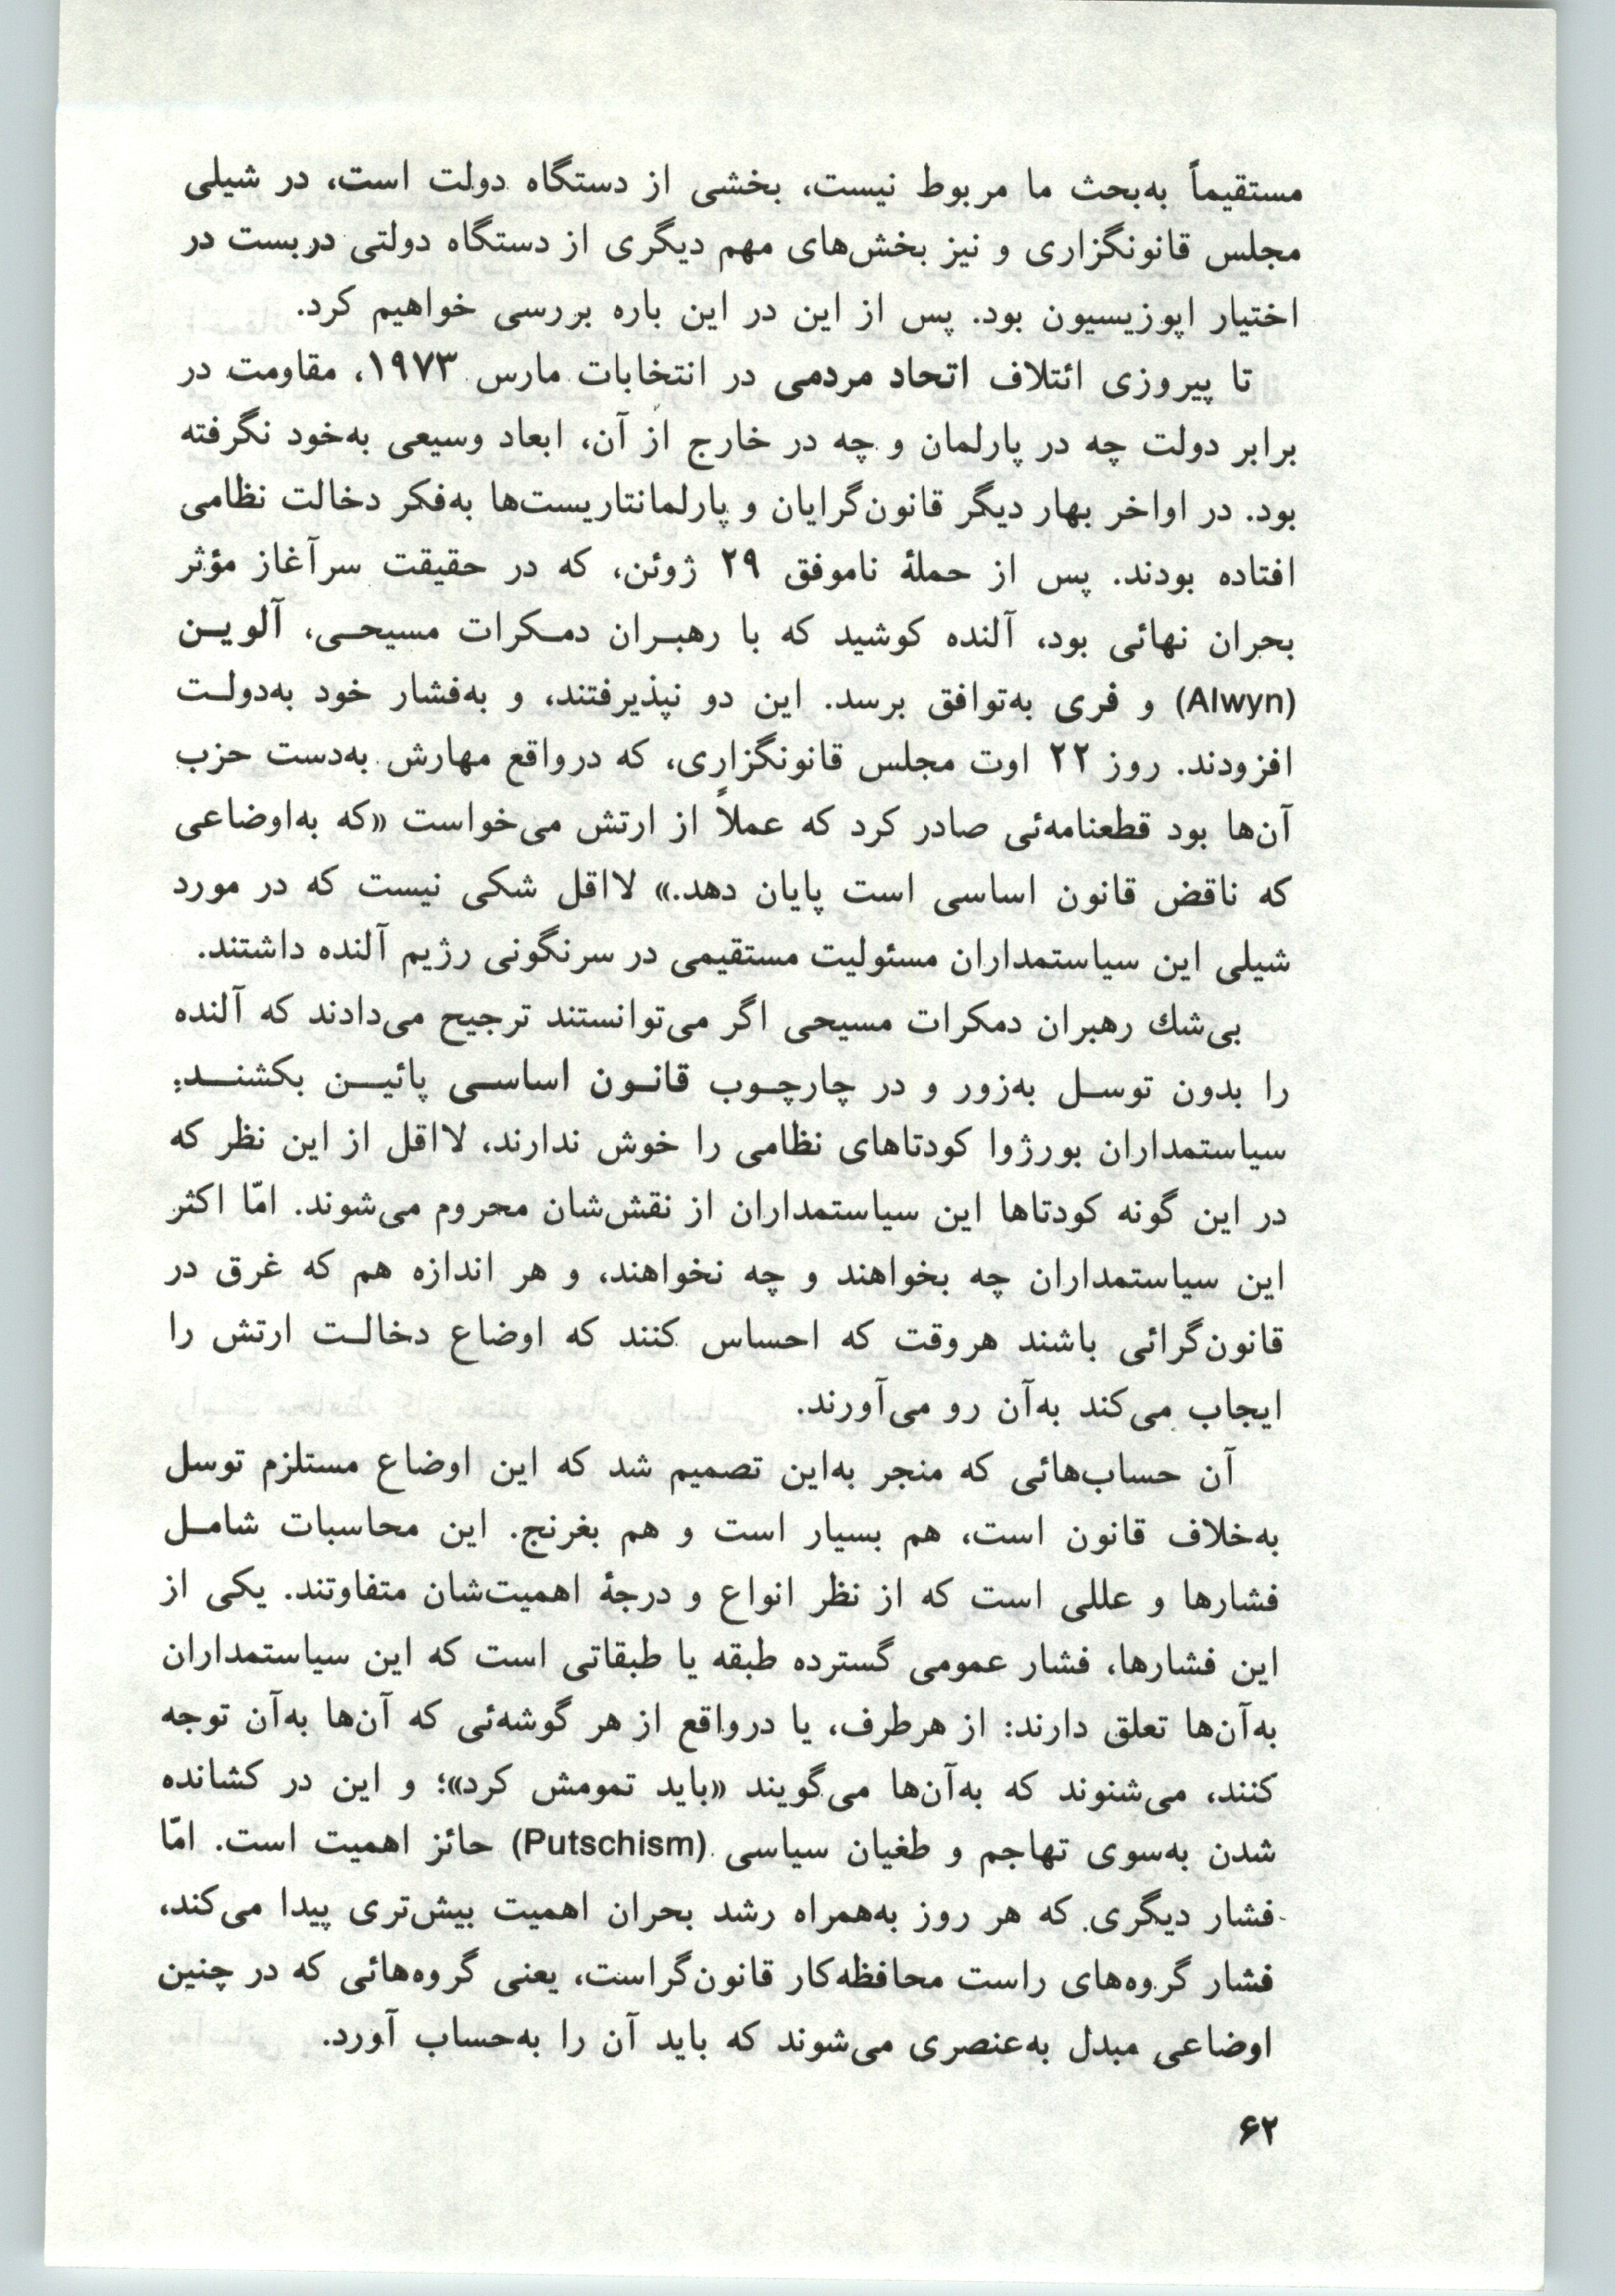 مستقیماً به‌بحث ما مربوط نیست، بخشی از دستگاه دولت است، در شیلی
مجلس قانونگزاری و نیز بخش‌های مهم دیگری از دستگاه دولتی دربست در
اختیار اپوزیسیون بود. پس از این در این باره بررسی خواهیم کرد.
تا پیروزی ائتلاف اتحاد مردمی در انتخابات مارس ۱۹۷۳، مقاومت در
برابر دولت چه در پارلمان و چه در خارج از آن، ابعاد وسیعی به‌خود نگرفته
بود. در اواخر بهار دیگر قانون‌گرایان و پارلمانتاریست‌ها به‌فکر دخالت نظامی
افتاده بودند. پس از حملهٔ ناموفق ۲۹ ژوئن، که در حقیقت سرآغاز مؤثر
بحران نهائی بود، آلنده کوشید که با رهبـران دمـکرات مسیحـی، آلویـن
(Alwyn) و فری به‌توافق برسد. این دو نپذیرفتند، و به‌فشار خود به‌دولـت
افزودند. روز ۲۲ اوت مجلس قانونگزاری، که درواقع مهارش به‌دست حزب
آن‌ها بود قطعنامه‌ئی صادر کرد که عملاً از ارتش می‌خواست «که به‌اوضاعی
که ناقض قانون اساسی است پایان دهد.» لااقل شکی نیست که در مورد
شیلی این سیاستمداران مسئولیت مستقیمی در سرنگونی رژیم آلنده داشتند.
بی‌شك رهبران دمکرات مسیحی اگر می‌توانستند ترجیح می‌دادند که آلنده
را بدون توسـل به‌زور و در چارچـوب قانـون اساسـی پائیـن بکشنـد:
سیاستمداران بورژوا کودتاهای نظامی را خوش ندارند، لااقل از این نظر که
در این گونه کودتاها این سیاستمداران از نقش‌شان محروم می‌شوند. امّا اکثر
این سیاستمداران چه بخواهند و چه نخواهند، و هر اندازه هم که غرق در
قانون‌گرائی باشند هروقت که احساس کنند که اوضاع دخالـت ارتش را
ایجاب می‌کند به‌آن رو می‌آورند.
آن حساب‌هائی که منجر به‌این تصمیم شد که این اوضاع مستلزم توسل
به‌خلاف قانون است، هم بسیار است و هم بغرنج. این محاسبات شامـل
فشارها و عللی است که از نظر انواع و درجهٔ اهمیت‌شان متفاوتند. یکی از
این فشارها، فشار عمومی گسترده طبقه یا طبقاتی است که این سیاستمداران
به‌آن‌ها تعلق دارند: از هرطرف، یا درواقع از هر گوشه‌ئی که آن‌ها به‌آن توجه
کنند، می‌شنوند که به‌آن‌ها می‌گویند «باید تمومش کرد»؛ و این در کشانده
شدن به‌سوی تهاجم و طغیان سیاسی (Putschism) حائز اهمیت است. امّا
فشار دیگری که هر روز به‌همراه رشد بحران اهمیت بیش‌تری پیدا می‌کند،
فشار گروه‌های راست محافظه‌کار قانون‌گراست، یعنی گروه‌هائی که در چنین
اوضاعی مبدل به‌عنصری می‌شوند که باید آن را به‌حساب آورد.
۶۲